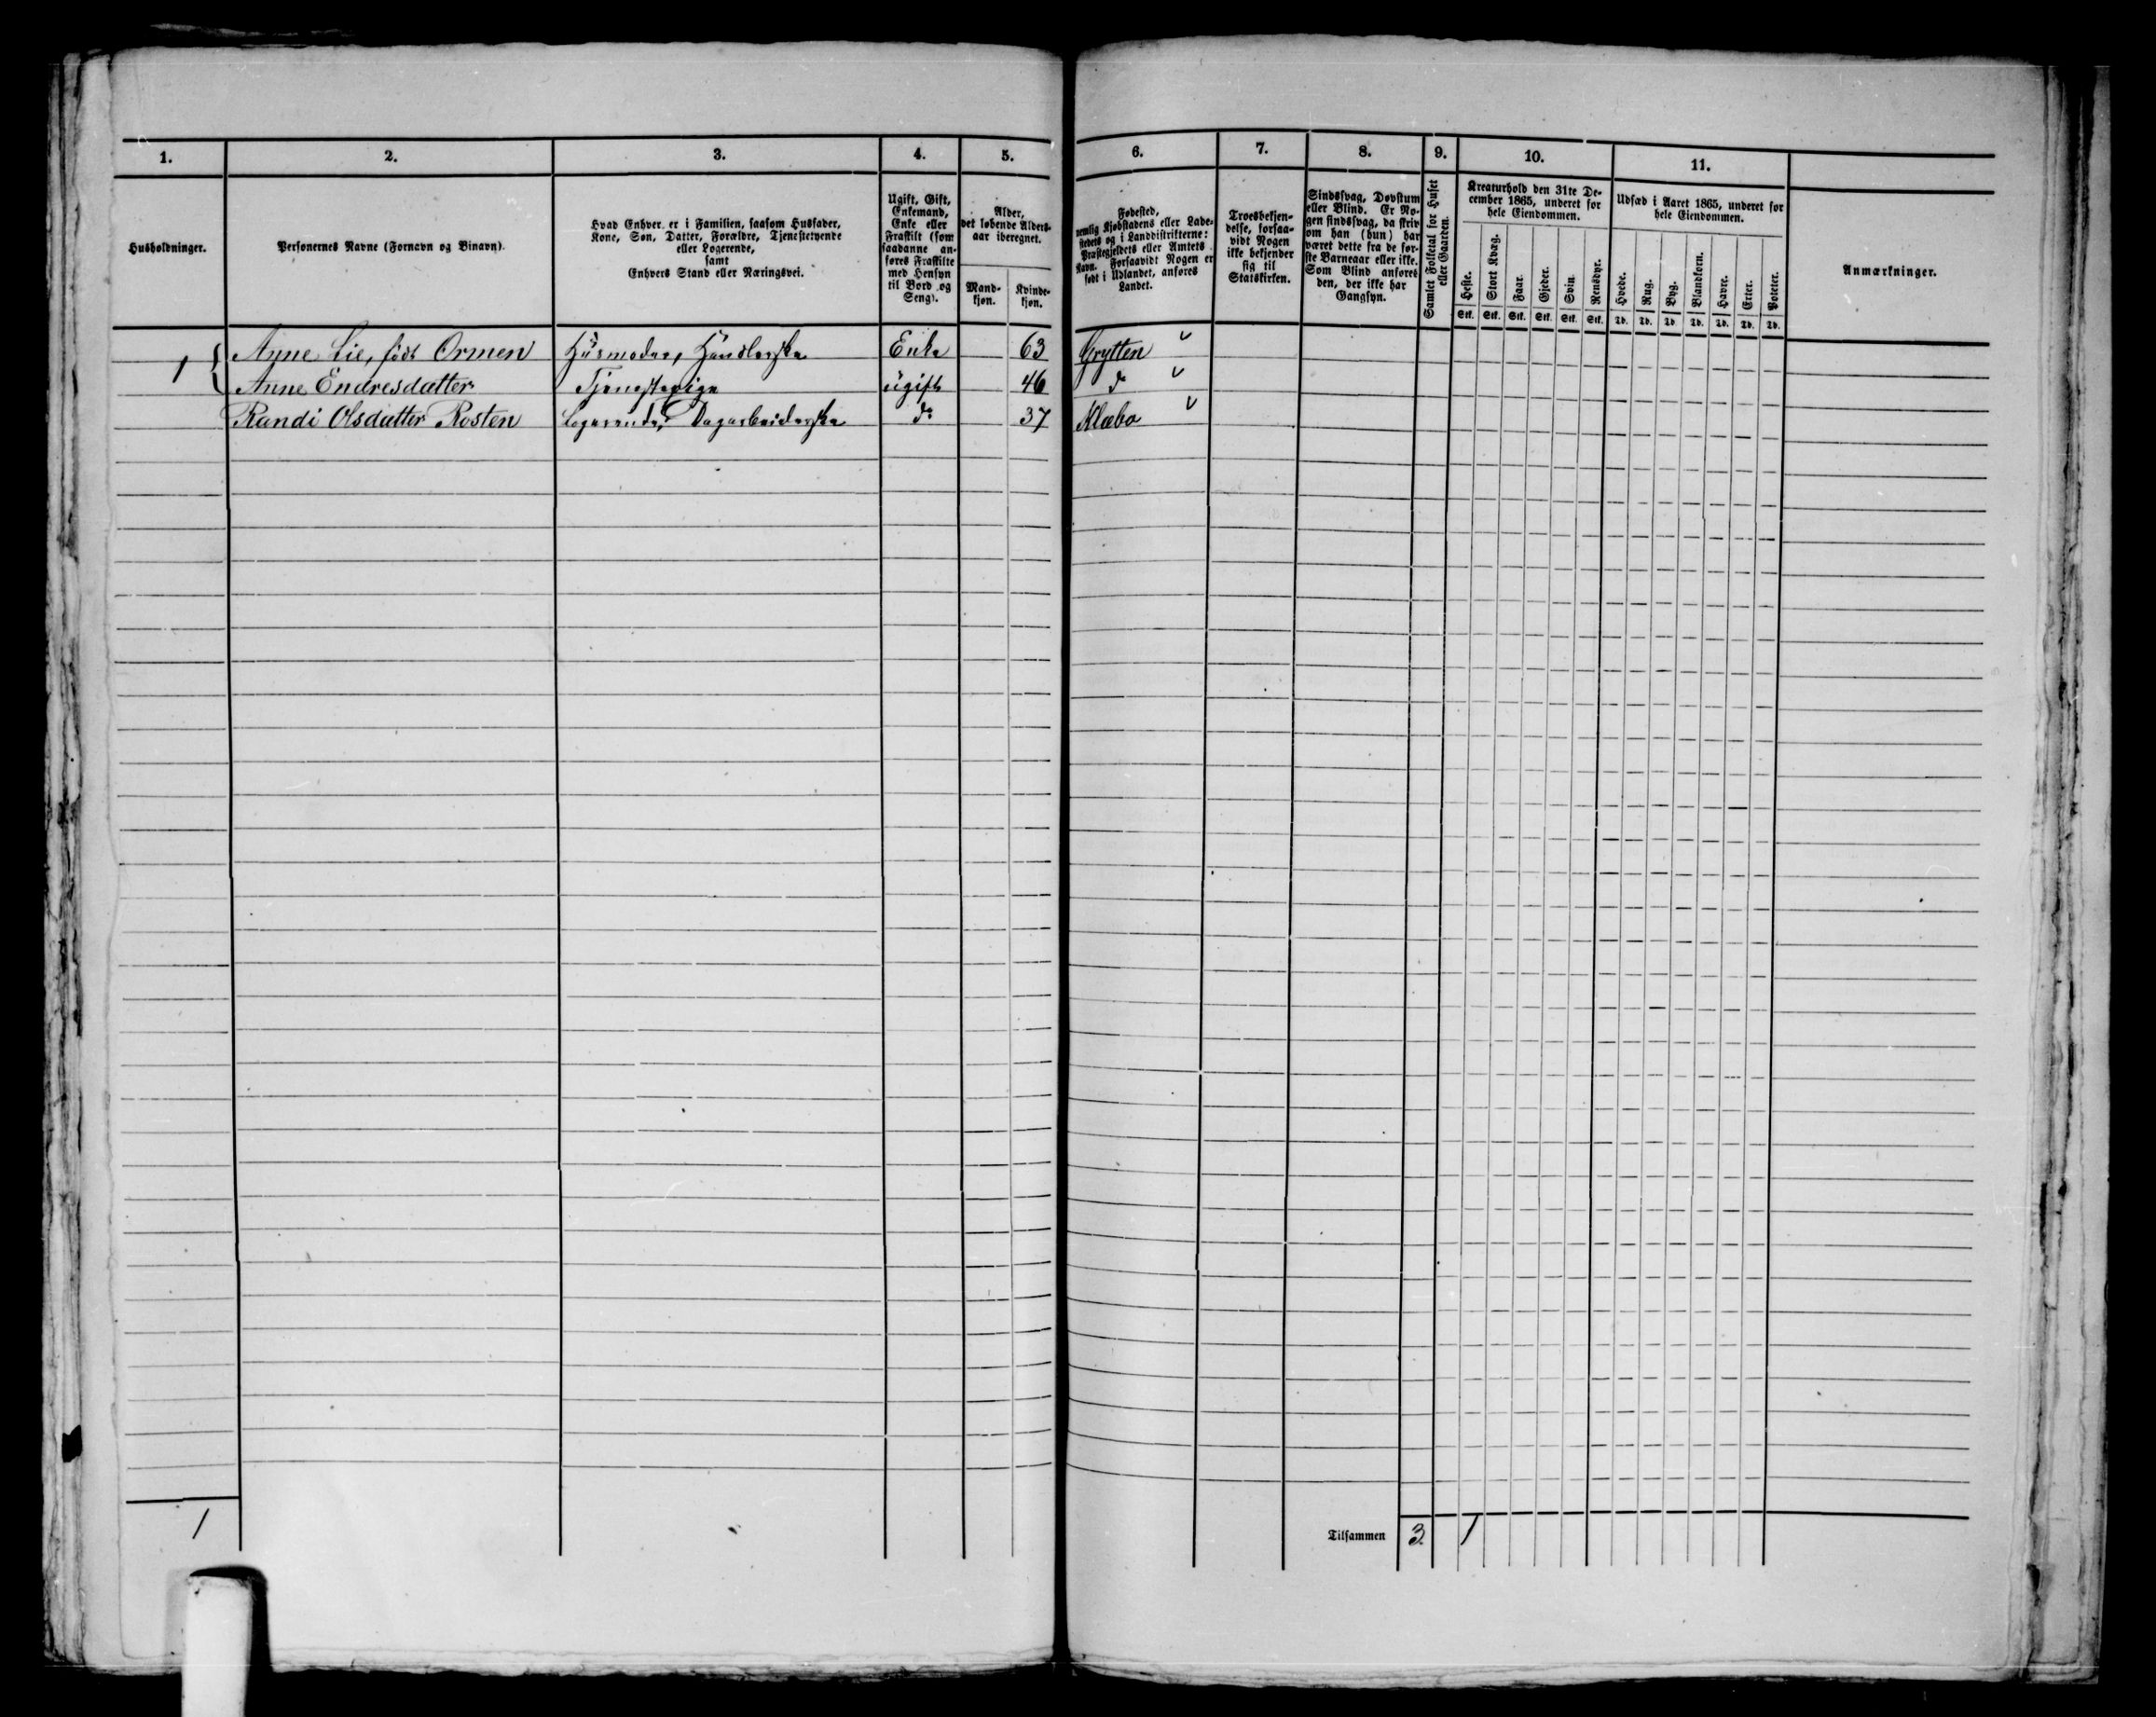 1. 2. 3. 4. 5. 6. 7. 8. 9. 10. 11.
Husholdninger.
Personernes Navne (Fornavn og Binavn).
Hvad Enhver er i Familien, saasom Husfader,
Kone, Søn, Datter, Forældre, Tjenestetyende
eller Logerende,
samt
Enhvers Stand eller Næringsvei.
Ugift, Gift,
Enkemand,
Enke eller
Fraskilt (som
saadanne an-
føres Fraskilte
med Hensyn
til Bord og
Seng).
Alder,
det løbende Alders-
aar iberegnet.
Mand-
kjøn.
Kvinde-
kjøn.
Fødested,
nemlig Kjøbstadens eller Lade-
stedets og i Landdistrikterne:
Præstegjeldets eller Amtets
Navn. Forsaavidt Nogen er
født i Udlandet, anføres
Landet.
Troesbekjen-
delse, forsaa-
vidt Nogen
ikke bekjender
sig til
Statskirken.
Sindssvag, Døvstum
eller Blind. Er No-
gen sindssvag, da skriv
om han (hun) har
været dette fra de før-
ste Barneaar eller ikke.
Som Blind anføres
den, der ikke har
Gangsyn.
Samlet Folketal for Huset
eller Gaarden.
Kreaturhold den 31te De-
cember 1865, underet for
hele Eiendommen.
Heste. Stort Kvæg. Faar. Gjeder. Svin. Rensdyr.
Stk. Stk. Stk. Stk. Stk. Stk.
Udsæd i Aaret 1865, underet for
hele Eiendommen.
Hvede. Rug. Byg. Blandkorn. Havre. Erter. Poteter.
Td. Td. Td. Td. Td. Td. Td.
Anmærkninger.
1 { Anne Lie, født Ormen Husmoder, Handlerske Enke 63 Grytten v
Anne Endresdatter Tjenestepige ugift 46 do v
Randi Olsdatter Rosten Logerende, Dagarbeiderske do 37 Klæbo v
1 Tilsammen 3. 1